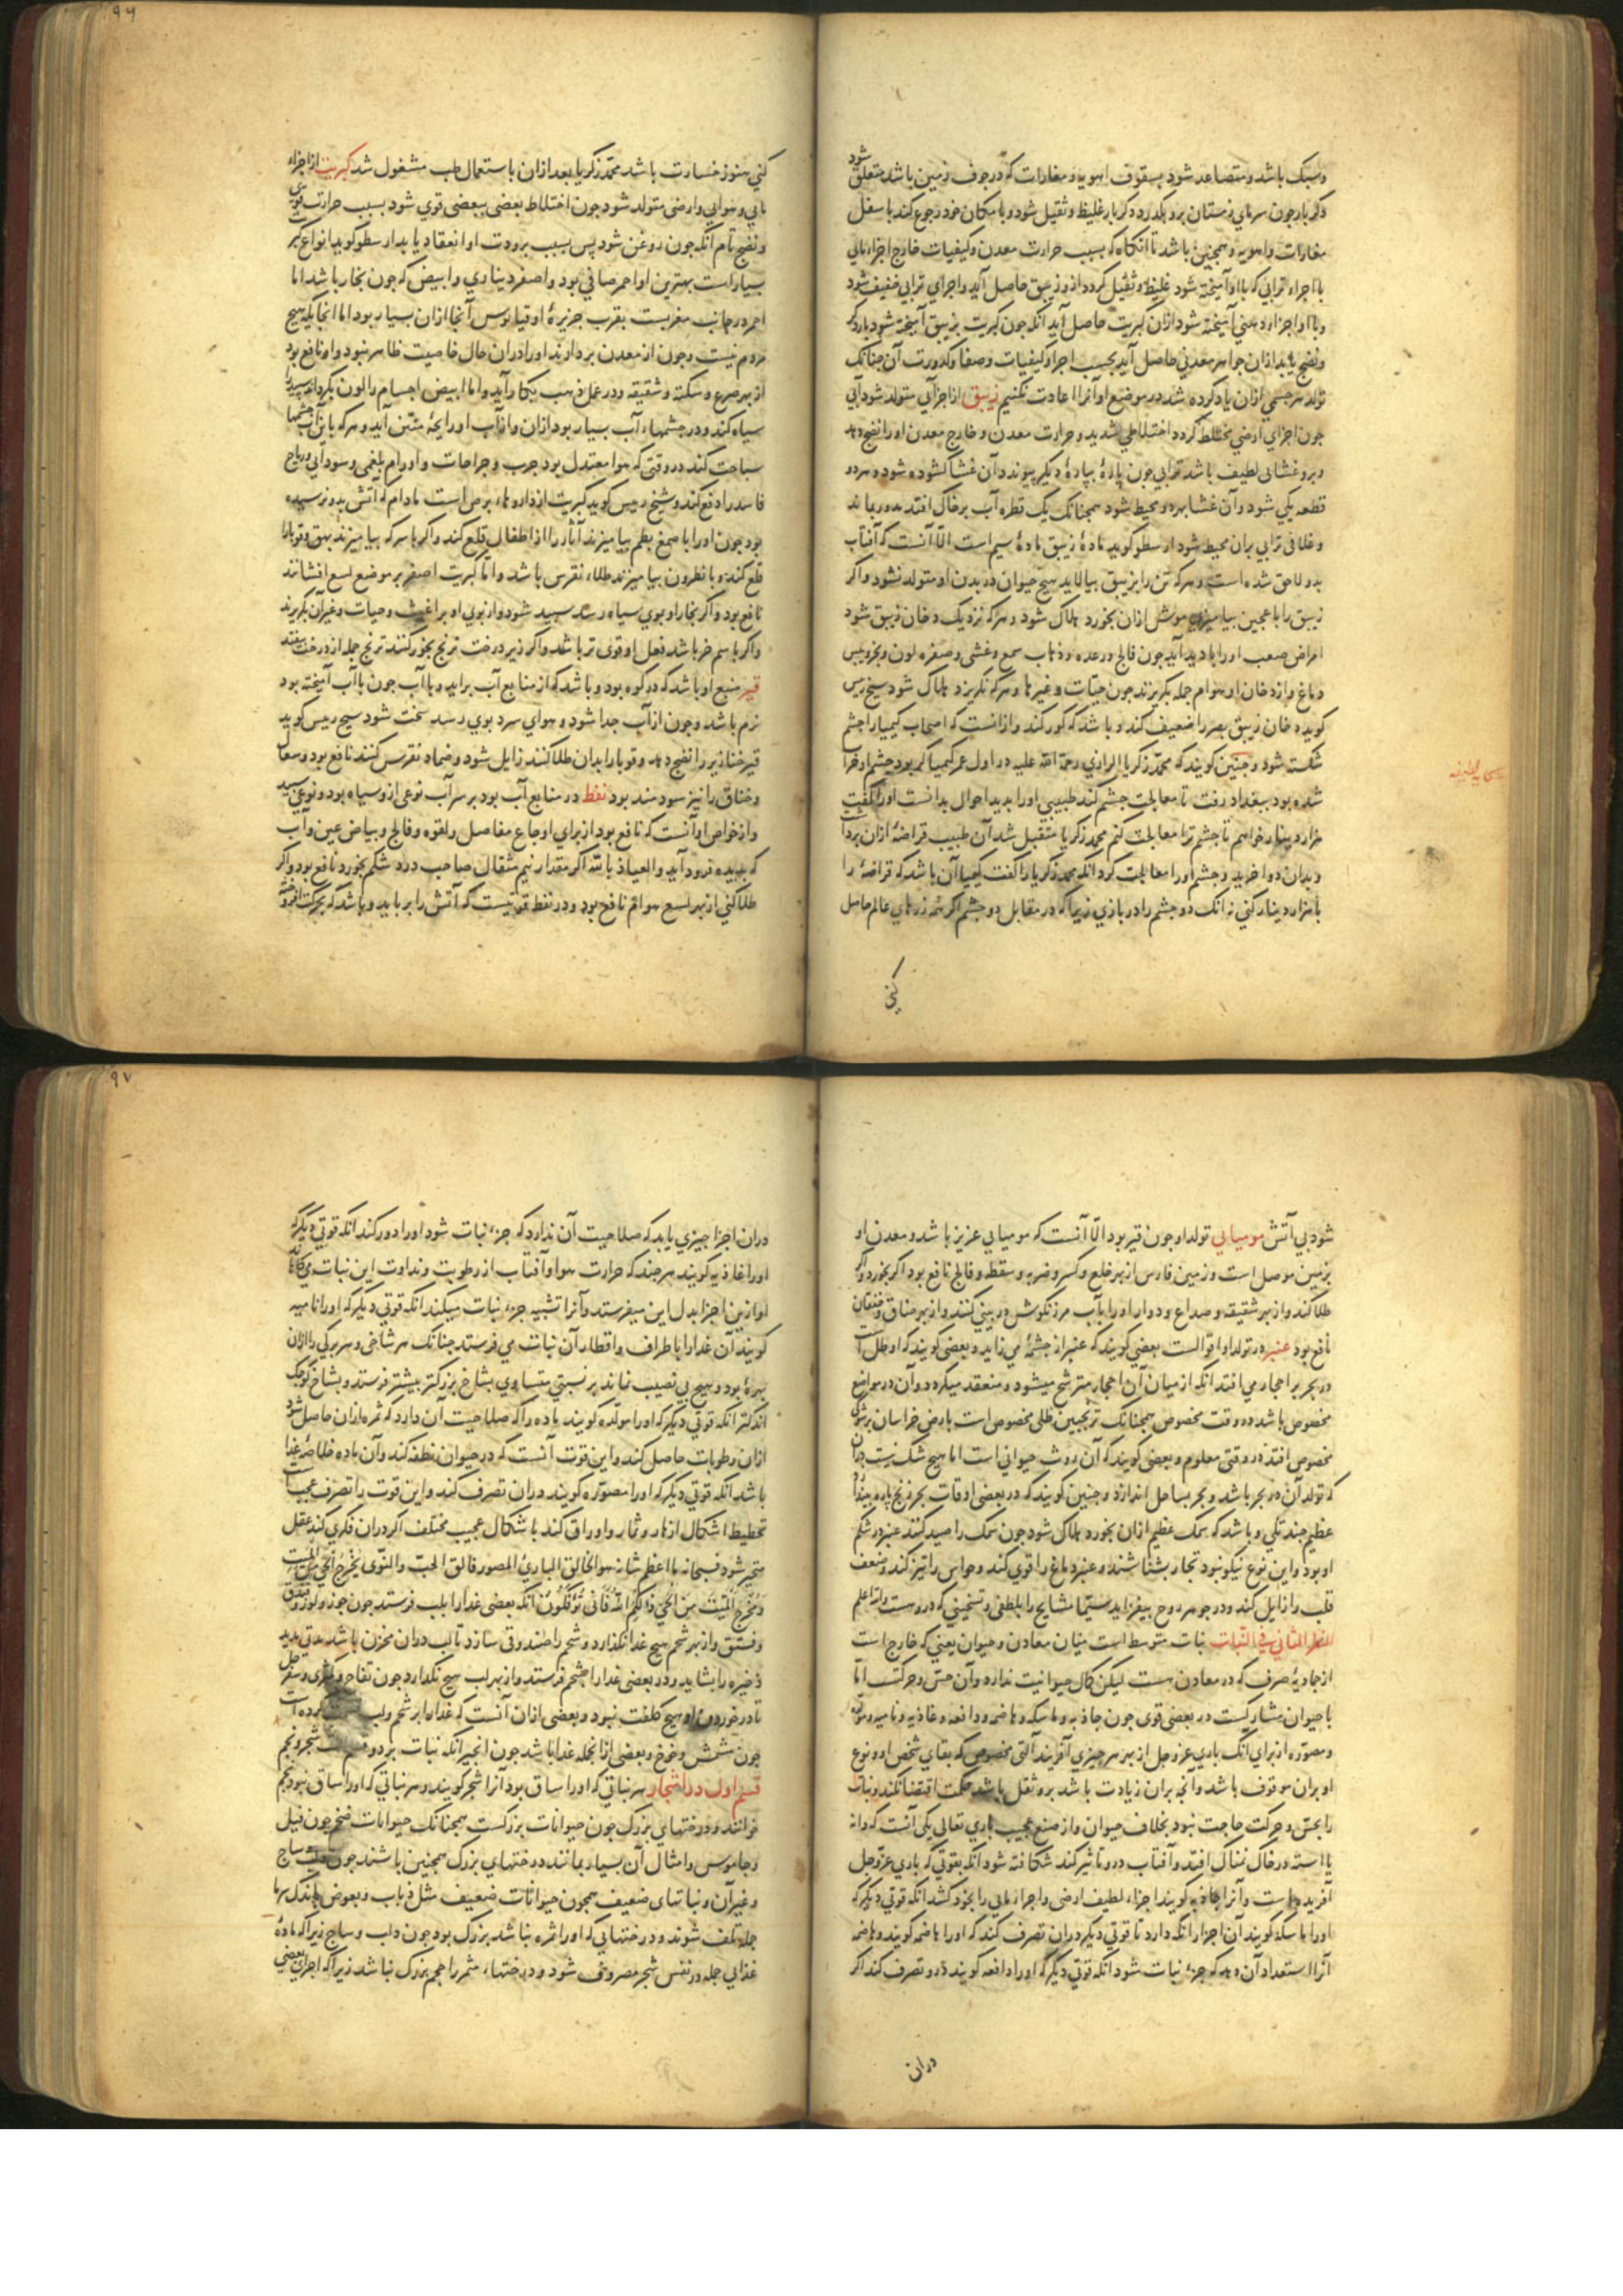 وسبک باشد ومتصاعد شود بسقوف اهویه ومغارات که در جوف زمین باشد متعلق شود
دکر بار جون سرمای زمستان برو بکذرد دکر بار غلیظ وثقیل شود وبا مکان خود رجوع کند باسفل
مغارات واهویه وهمجنین باشد تا آنکاه که بسبب حرارت معدن وکیفیات خارج اجزاء مائی
با اجزاء ترابی که با او آمیخته شود غلیظ وثقیل کردد ازو زیبق حاصل آید واجزای ترابی خفیف شود
وبا او اجزاء دهنی آمیخته شود ازان کبریت حاصل آید آنکه جون کبریت بزیبق آمیخته شود بارد که
ونضج یابد ازان جواهر معدنی حاصل آید بحسب اجزا وکیفیات وصفا وکدورت آن جنانک
تولد هر جسمی ازان یاد کرده شد در موضع او آنرا اعادت نکنیم زیبق از اجزای متولد شود آبی
جون اجزای ارضی مختلط کردد اختلاطی شدید وحرارت معدن وخارج معدن اورا نضج دهد
وبرو غشائی لطیف باشد ترابی جون پارهٔ بپارهٔ دیکر پیوندد آن غشا کشوده شود وهر دو
قطعه یکی شود وآن غشا بهر دو محیط شود همجنانک یک قطره آب بر خاک افتد مدور بماند
وغلافی ترابی بران محیط شود ارسطو کوید مادهٔ زیبق مادهٔ سیم است الّا آنست که آفتاب
بدو لاحق شده است وهر که تن را بزیبق بیالاید هیج حیوان در بدن او متولد نشود واکر
زیبق را با عجین بیامیزند موش ازان بخورد هلاک شود وهر که نزدیک دخان زیبق شود
امراض صعب اورا بادید آید جون فالج ورعده وذهاب سمع وغشی وصفره لون وبخر ویبس
دماغ واز دخان او هوام جمله بکریزند جون حیّات وغیرها وهر که نکریزد هلاک شود شیخ رئیس
کوید دخان زیبق بصر را ضعیف کند وباشد که کور کند وازانست که اصحاب کیمیا را جشم
شکسته شود وجنین کویند که محمد زکریا الرازی رحمة الله علیه در اول عمر کیمیاکر بود جشم او خراب
شده بود ببغداد رفت تا معالجت جشم کند طبیبی اورا بدید احوال بدانست اورا کفت
هزار دینار خواهم تا جشم ترا معالجت کنم محمد زکریا متقبل شد آن طبیب قراضهٔ ازان برداشت
وبدان دوا خرید وجشم اورا معالجت کرد آنکه محمد زکریا را کفت کیمیا آن باشد که قراضهٔ را
با هزار دینار کنی نه آنک دو جشم را در بازی زیرا که در مقابل دو جشم اکر همه زرهای عالم حاصل
کنی
کنی هنوز خسارت باشد محمّد زکریا بعد ازان باستعمال طب مشغول شد کبریت از اجزاء
مائی وهوائی وارضی متولد شود جون اختلاط بعضی ببعضی قوی شود بسبب حرارت قوی
ونضج تام آنکه جون روغن شود پس بسبب برودت او انعقاد یابد ارسطو کوید انواع کبریت
بسیار است بهترین او احمر صافی بود واصفر دیناری وابیض که جون بخار باشد اما
احمر در جانب مغربست بقرب جزیرهٔ اوقیانوس آنجا ازان بسیار بود اما انجایکه هیج
مردم نیست وجون از معدن بردارند اورا دران حال خاصیت ظاهر نبود واو نافع بود
از بهر صرع وسکته وشقیقه ودر عمل ذهب بکار آید واما ابیض اجسام را لون بکرداند سپید
سیاه کند ودر جشمهاء آب بسیار بود ازان وازآب او رایحهٔ منتن آید وهر که با آن آب جشمها
سباحت کند در وقتی که هوا معتدل بود جرب وجراحات واورام بلغمی وسودائی وریاح
فاسد را دفع کند وشیخ رئیس کوید کبریت از داروهاء برص است مادام که آتش بدو نرسیده
بود جون اورا با صمغ بطم بیامیزند آثار را از اظفار قلع کند واکر با سرکه بیامیزند بهق وقوبا را
قلع کند وبا نطرون بیامیزند طلاء نقرس باشد واما کبریت اصفر بر موضع لسع افشانند
نافع بود واکر بخار او بموی سیاه رسد سپید شود واز بوی او براغیث وحیات وغیر آن بکریزند
واکر با سم خر باشد فعل او قوی تر باشد واکر زیر درخت ترنج بخور کنند ترنج جمله از درخت بیفتد
قیر منبع او باشد که در کوه بود وباشد که از منابع آب برآید وبا آب جون با آب آمیخته بود
نرم باشد وجون از آب جدا شود وهوای سرد بوی رسد سخت شود شیخ رئیس کوید
قیر خنازیر را نضج دهد وقوبا را بدان طلا کنند زایل شود وضماد نقرس کنند نافع بود وسعال
وخناق را نیز سودمند بود نفط در منابع آب بود بر سر آب نوعی ازو سیاه بود ونوعی سپید
واز خواص او آنست که نافع بود از برای اوجاع مفاصل ولقوه وفالج وبیاض عین وآب
که بدیده فرود آید والعیاذ بالله اکر مقدار نیم مثقال صاحب درد شکم بخورد نافع بود واکر
طلا کنی از بهر لسع هوام نافع بود ودر نفط قوتیست که آتش را برباید وباشد که بحرکت افروخته
شود بی آتش مومیایی تولد او جون قیر بود الّا آنست که مومیایی عزیز باشد ومعدن او
بزمین موصل است وزمین فارس از بهر خلع وکسر وضربه وسقطه وفالج نافع بود اکر بخورد واکر
طلا کند واز بهر شقیقه وصداع ودوار اورا بآب مرزنکوش در بینی کنند واز بهر خناق وخفقان
نافع بود عنبر در تولد او اقوالست بعضی کویند که عنبر از جشمهٔ می زاید وبعضی کویند که او طل است
در بحر بر احجار می افتد آنکه از میان آن احجار مترشح میشود ومنعقد میکردد وآن در مواضع
مخصوص باشد در وقت مخصوص همجنانک ترنجبین طلی مخصوص است بارض خراسان بر شوکی
مخصوص افتد در وقتی معلوم وبعضی کویند که آن روث حیوانی است اما هیج شک نیست دران
که تولد آن در بحر باشد وبحر بساحل اندازد وجنین کویند که در بعضی اوقات بحر زنج پاره بیندازد
عظیم جند تلی وباشد که سمک عظیم ازان بخورد هلاک شود جون سمک را صید کنند عنبر در شکم
او بود واین نوع نیکو نبود تجار بشناسند وعنبر دماغ را قوی کند وحواس را تیز کند وضعف
قلب را زایل کند ودر جوهر روح بیفزاید سیّما مشایخ را بلطفی وتسخینی که دروست والله اعلم
النظر الثانی فی النبات نبات متوسط است میان معادن وحیوان یعنی که خارج است
از جمادیهٔ صرف که در معادن هست لیکن کمال حیوانیت ندارد وآن حسّ وحرکتست اما
با حیوان مشارکست در بعضی قوی جون جاذبه وماسکه وهاضمه ودافعه وغاذیه ونامیه ومولده
ومصوّره از برای آنک باری عزوجل از بهر هر جیزی آفریند آلتی مخصوص که بقای شخص او ونوع
او بران موقوف باشد وآنجه بران زیادت باشد برو ثقل باشد حکمت اقتضا نکند ونبات
را بحسّ وحرکت حاجت نبود بخلاف حیوان واز صنع عجیب باری تعالی یکی آنست که دانه
یا استه در خاک نمناک افتد وآفتاب درو تاثیر کند شکافته شود آنکه بقوتی که باری عزوجل
آفریده است وآنرا جاذبه کویند اجزاء لطیف ارضی واجزاء مائی را بخود کشد آنکه قوتی دیکر که
اورا ماسکه کویند آن اجزا را نکه دارد تا قوتی دیکر دران تصرف کند که اورا هاضمه کویند وهاضمه
آنرا استعداد آن دهد که جزء نبات شود آنکه قوتی دیکر که اورا دافعه کویند درو تصرف کند اکر
دران
دران اجزا جیزی یابد که صلاحیت آن ندارد که جزء نبات شود اورا دور کند آنکه قوتی دیکر که
اورا غاذیه کویند هر جند که حرارت هوا وآفتاب از رطوبت ونداوت این نبات می کاهد
او ازین اجزا بدل این میفرستد وآنرا تشبیه جزء نبات میکند آنکه قوتی دیکر که اورا نامیه
کویند آن غذا را باطراف واقطار آن نبات می فرستد جنانک هر شاخی وهر برکی را ازان
بهرهٔ بود وهیج بی نصیب نماند بر نسبتی متساوی بشاخ بزرکتر بیشتر فرستد وبشاخ کوجک
اندکتر آنکه قوتی دیکر که اورا مولّده کویند مادهٔ را که صلاحیت آن دارد که ثمره ازان حاصل شود
ازان رطوبات حاصل کند واین قوت آنست که در حیوان نطفه کند وآن ماده خلاصهٔ غذا
باشد آنکه قوتی دیکر که اورا مصوّره کویند دران تصرف کند واین قوت را تصرف عجیبست
تخطیط اشکال ازهار وثمار واوراق کند باشکال عجیب مختلف اکر دران فکری کند عقل
متحیر شود فسبحانه ما اعظم شانه هو الخالق البارئ المصور فالق الحبّ والنّوی یُخرج الحیّ من المیّت
ومُخرج المیّت من الحیّ ذٰلکم اللّه فانّی تؤفکون آنکه بعضی غذا را بلب فرستد جون جوز ولوز وفندق
وفستق واز بهر شحم هیج غذا نکذارد وشحم را صندوقی سازد تا لب دران مخزن باشد مدتی مدید
ذخیره را بشاید ودر بعضی غذا را بشحم فرستد واز بهر لب هیج نکذارد جون تفاح وکمثری وسفرجل
تا در خوردن او هیج کلفت نبود وبعضی ازان آنست که غذاء او بر شحم ولب قسمت کرده است
جون مشمش وخوخ وبعضی ازانجمله غذا باشد جون انجیر آنکه نبات بر دو قسم است شجر ونجم
قسم اول در اشجار هر نباتی که اورا ساق بود آنرا شجر کویند وهر نباتی که اورا ساق نبود نجم
خوانند ودرختهای بزرک جون حیوانات بزرکست همجنانک حیوانات ضخم جون فیل
وجاموس وامثال آن بسیار بمانند درختهای بزرک همجنین باشند جون دلب وساج
وغیر آن ونباتهای ضعیف همجون حیوانات ضعیف مثل ذباب وبعوض باندک سرما
جمله تلف شوند ودرختهائی که اورا ثمره نباشد بزرک بود جون دلب وساج زیرا که مادهٔ
غذائی جمله در نفس شجر مصروف شود ودرختهاء مثمر را حجم بزرک نباشد زیرا که اجزای بعضی